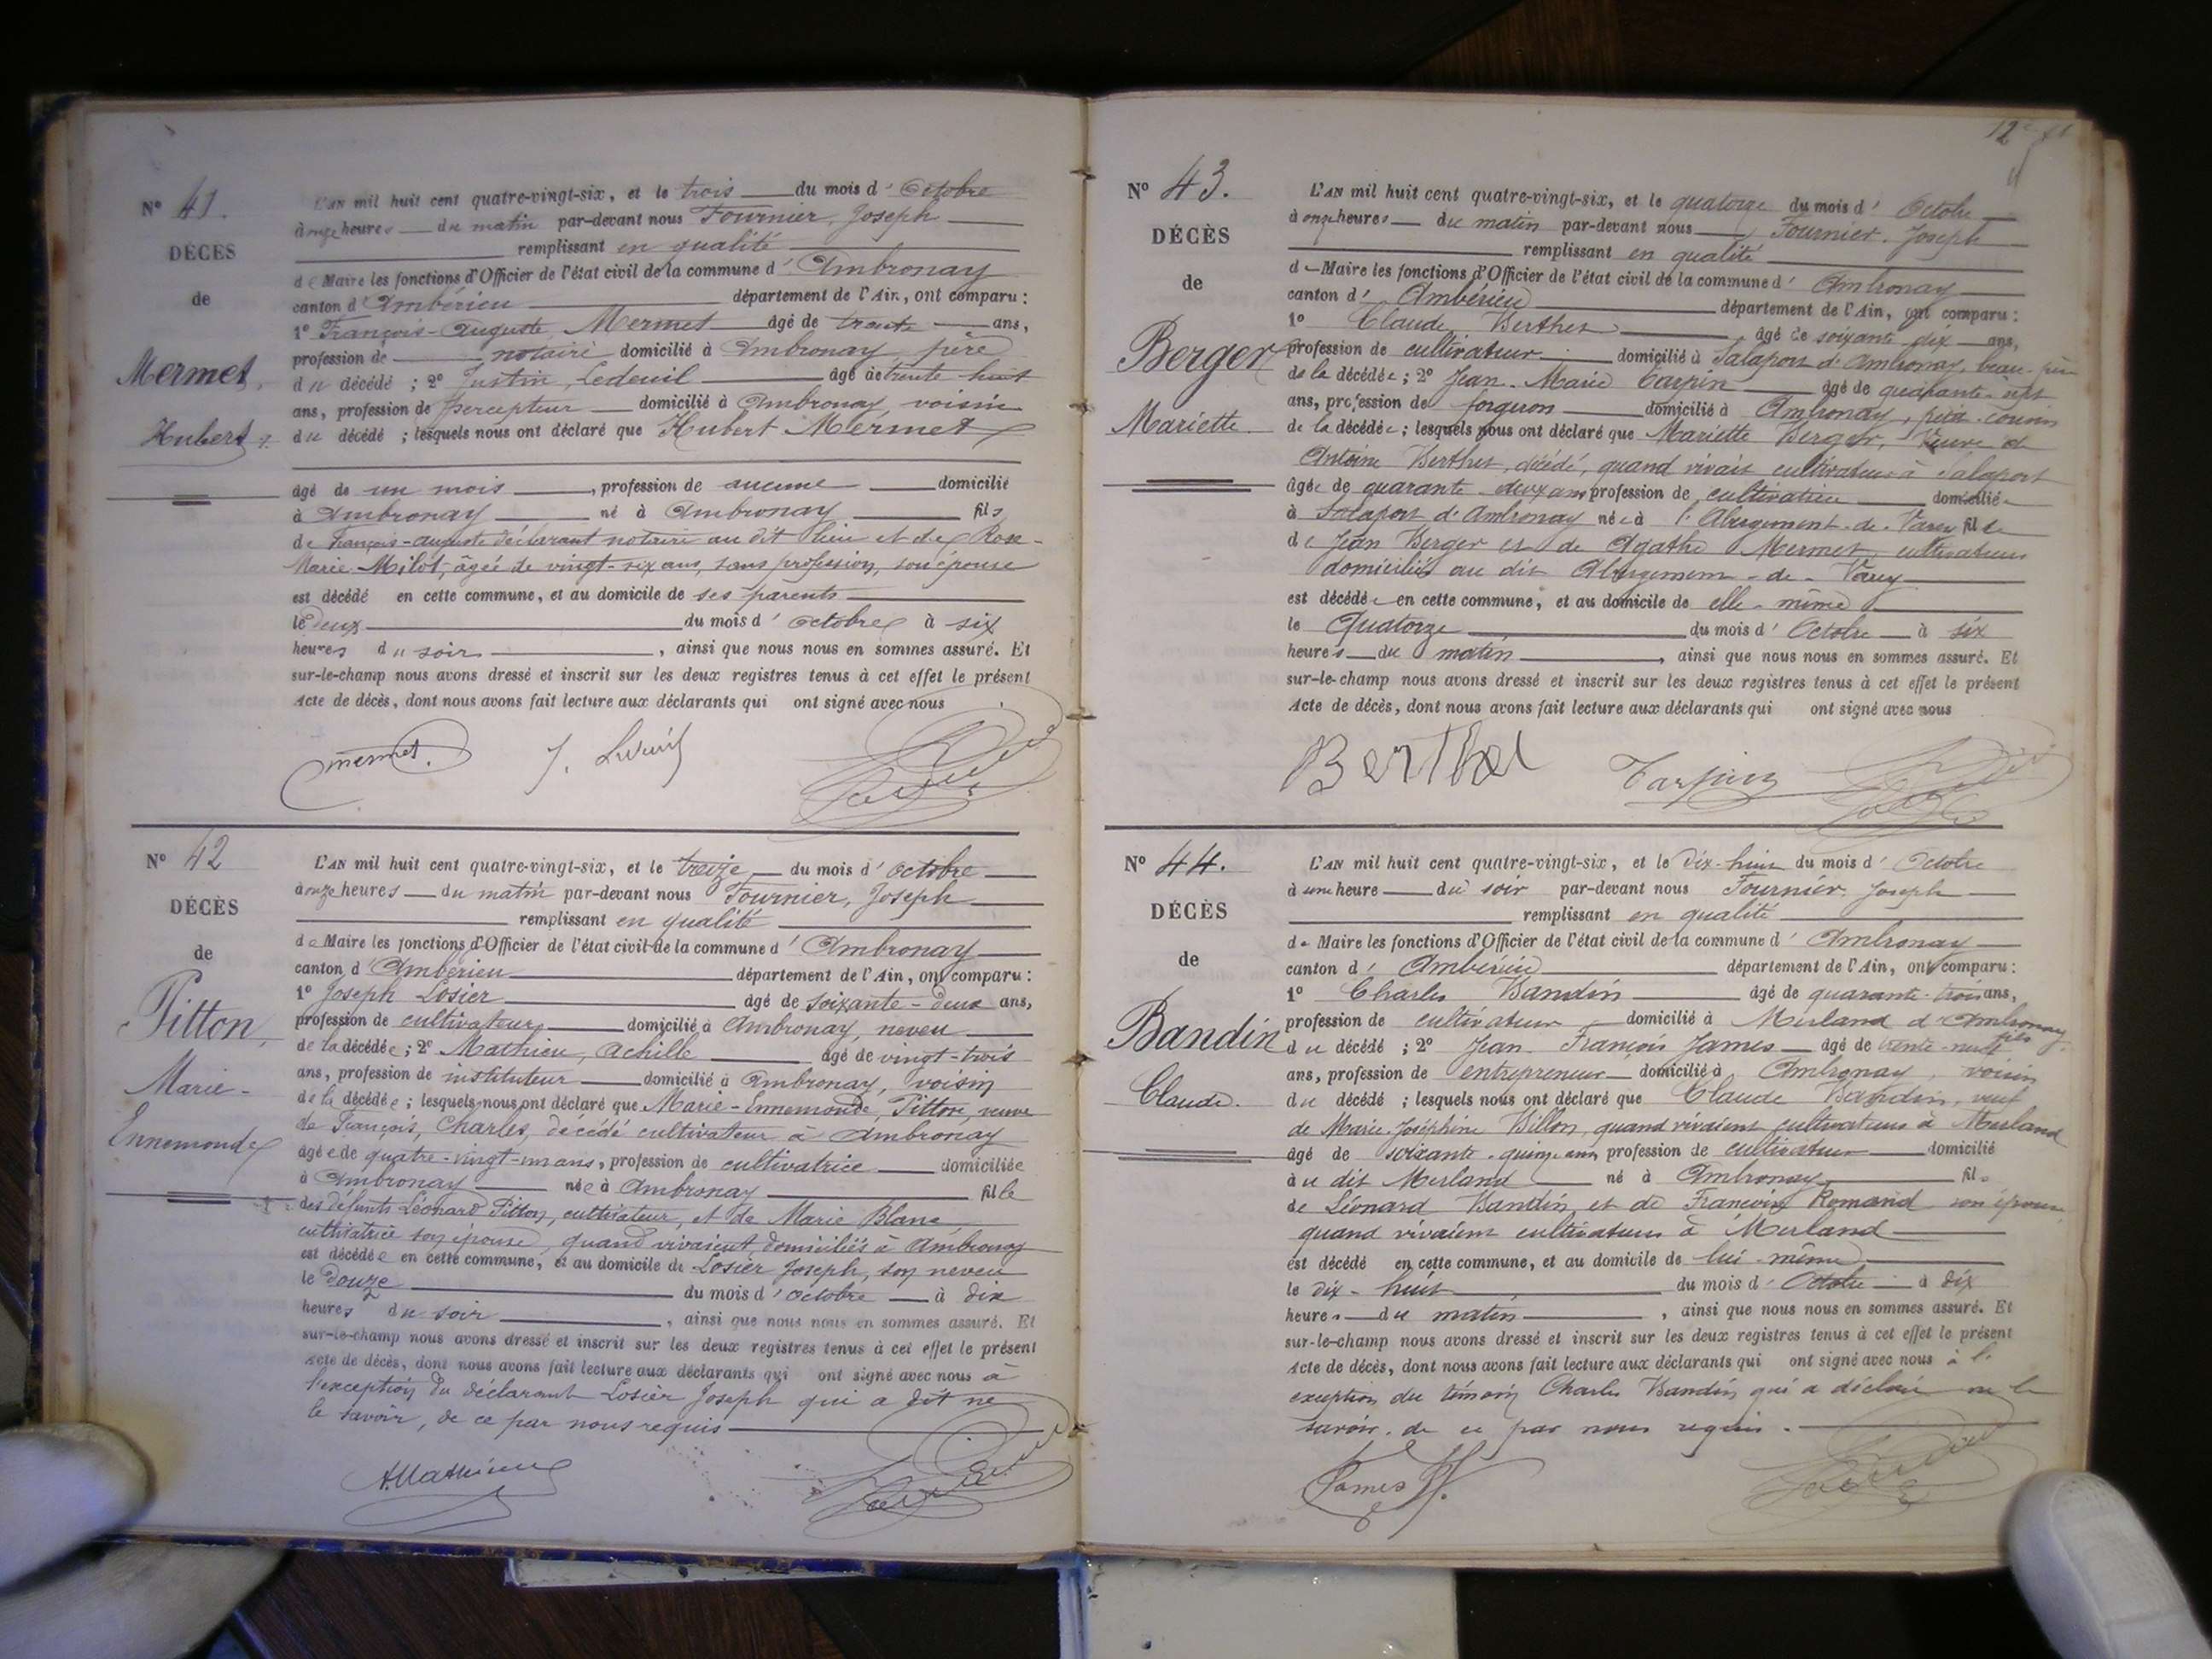 N° 41.
DÉCÈS
de
Mermet,
Hubert
L'AN mil huit cent quatre-vingt-six, et le trois du mois d'Octobre
à onze heures du matin par-devant nous Fournier, Joseph
remplissant en qualité
de Maire les fonctions d'Officier de l'état civil de la commune d'Ambronay
canton d'Ambérieu département de l'Ain, ont comparu :
1° François-Auguste Mermet âgé de trente ans,
profession de notaire domicilié à Ambronay, père
du décédé ; 2° Justin Ledeuil âgé de trente huit
ans, profession de percepteur domicilié à Ambronay, voisin
du décédé ; lesquels nous ont déclaré que Hubert Mermet
âgé de un mois, profession de aucune domicilié
à Ambronay né à Ambronay fils
de François-Auguste déclarant notaire au dit lieu et de Rose-
Marie Milot, âgée de vingt-six ans, sans profession, son épouse
est décédé en cette commune, et au domicile de ses parents
le deux du mois d'Octobre à six
heures du soir, ainsi que nous nous en sommes assuré. Et
sur-le-champ nous avons dressé et inscrit sur les deux registres tenus à cet effet le présent
Acte de décès, dont nous avons fait lecture aux déclarants qui ont signé avec nous
Mermet. J. Ledeuil
N° 42
DÉCÈS
de
Pitton,
Marie-
Ennemonde
L'AN mil huit cent quatre-vingt-six, et le treize du mois d'Octobre
à onze heures du matin par-devant nous Fournier, Joseph
remplissant en qualité
de Maire les fonctions d'Officier de l'état civil de la commune d'Ambronay
canton d'Ambérieu département de l'Ain, ont comparu :
1° Joseph Losier âgé de soixante-deux ans,
profession de cultivateur domicilié à Ambronay, neveu
de la décédée ; 2° Mathieu, Achille âgé de vingt-trois
ans, profession de instituteur domicilié à Ambronay, voisin
de la décédée ; lesquels nous ont déclaré que Marie-Ennemonde Pitton, veuve
de François, Charles, décédé cultivateur à Ambronay
âgée de quatre-vingt-un ans, profession de cultivatrice domiciliée
à Ambronay née à Ambronay fille
des défunts Léonard Pitton, cultivateur, et de Marie Blanc,
cultivatrice son épouse, quand vivaient domiciliés à Ambronay
est décédée en cette commune, et au domicile de Losier Joseph, son neveu
le douze du mois d'Octobre à dix
heures du soir, ainsi que nous nous en sommes assuré. Et
sur-le-champ nous avons dressé et inscrit sur les deux registres tenus à cet effet le présent
Acte de décès, dont nous avons fait lecture aux déclarants qui ont signé avec nous à
l'exception du déclarant Losier Joseph qui a dit ne
le savoir, de ce par nous requis
A. Mathieu
12e
N° 43.
DÉCÈS
de
Berger
Mariette
L'AN mil huit cent quatre-vingt-six, et le quatorze du mois d'Octobre
à onze heures du matin par-devant nous Fournier, Joseph
remplissant en qualité
de Maire les fonctions d'Officier de l'état civil de la commune d'Ambronay
canton d'Ambérieu département de l'Ain, ont comparu :
1° Claude Berthet âgé de soixante dix ans,
profession de cultivateur domicilié à Salaport d'Ambronay, beau-père
de la décédée ; 2° Jean-Marie Tarpin âgé de quarante-sept
ans, profession de forgeron domicilié à Ambronay, petit-cousin
de la décédée ; lesquels nous ont déclaré que Mariette Berger, veuve de
Antoine Berthet, décédé, quand vivait cultivateur à Salaport
âgée de quarante-deux ans profession de cultivatrice domiciliée
à Salaport d'Ambronay née à l'Abergement-de-Varey fille
de Jean Berger et de Agathe Mermet, cultivateurs
domiciliés au dit Abergement-de-Varey
est décédée en cette commune, et au domicile de elle-même
le Quatorze du mois d'Octobre à six
heures du matin, ainsi que nous nous en sommes assuré. Et
sur-le-champ nous avons dressé et inscrit sur les deux registres tenus à cet effet le présent
Acte de décès, dont nous avons fait lecture aux déclarants qui ont signé avec nous
Berthet Tarpin
N° 44.
DÉCÈS
de
Bandin
Claude.
L'AN mil huit cent quatre-vingt-six, et le dix-huit du mois d'Octobre
à une heure du soir par-devant nous Fournier, Joseph
remplissant en qualité
de Maire les fonctions d'Officier de l'état civil de la commune d'Ambronay
canton d'Ambérieu département de l'Ain, ont comparu :
1° Charles Bandin âgé de quarante-trois ans,
profession de cultivateur domicilié à Merland d'Ambronay, fils
du décédé ; 2° Jean François James âgé de trente-neuf
ans, profession de entrepreneur domicilié à Ambronay, voisin
du décédé ; lesquels nous ont déclaré que Claude Bandin, veuf
de Marie-Joséphine Billon, quand vivaient cultivateurs à Merland
âgé de soixante-quinze ans profession de cultivateur domicilié
à u dit Merland né à Ambronay fils
de Léonard Bandin et de Françoise Romand son épouse
quand vivaient cultivateurs à Merland
est décédé en cette commune, et au domicile de lui-même
le dix-huit du mois d'Octobre à dix
heures du matin, ainsi que nous nous en sommes assuré. Et
sur-le-champ nous avons dressé et inscrit sur les deux registres tenus à cet effet le présent
Acte de décès, dont nous avons fait lecture aux déclarants qui ont signé avec nous à l'
exception du témoin Charles Bandin qui a déclaré ne le
savoir, de ce par nous requis.
James